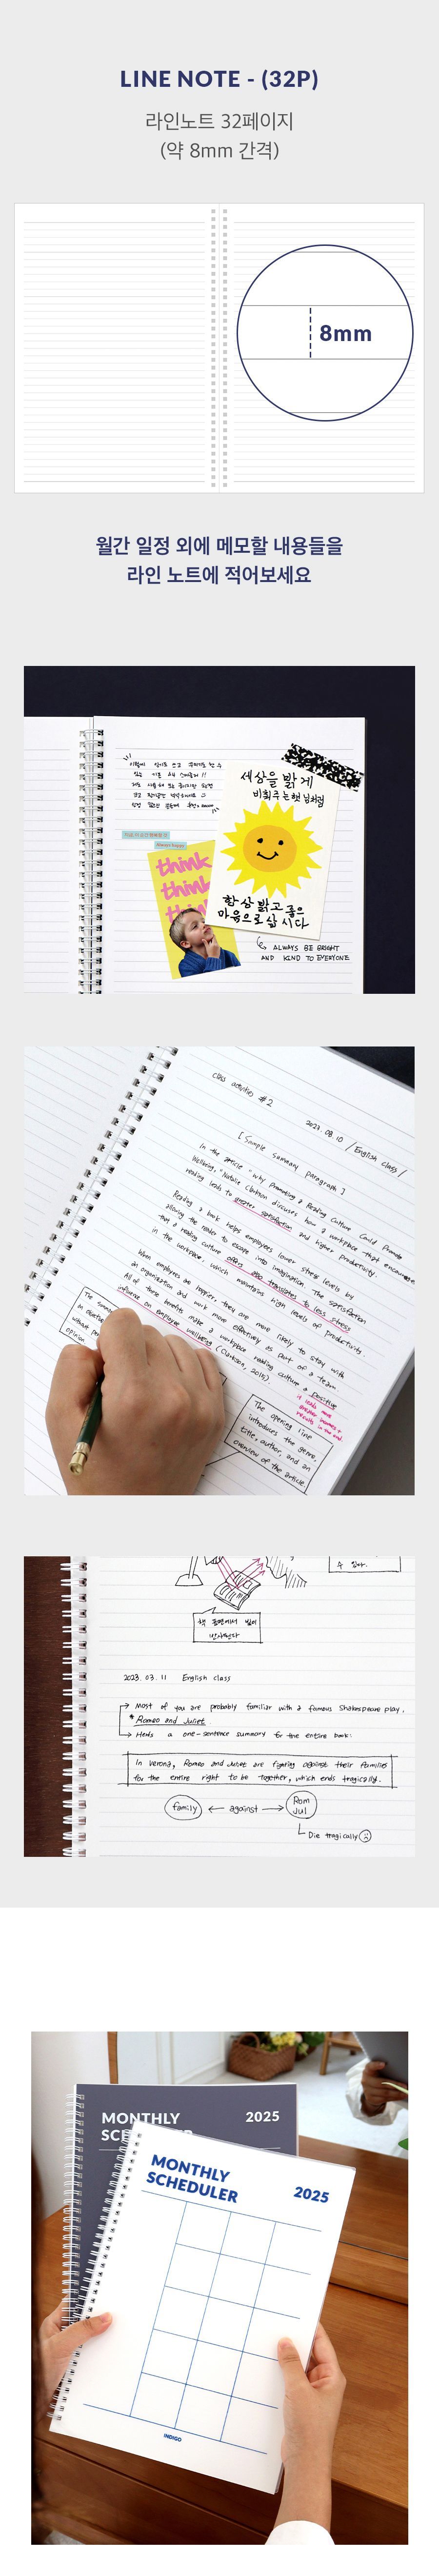 LINE NOTE - (32P)
라인노트 32페이지
(약 8mm 간격)
8mm
월간 일정 외에 메모할 내용들을
라인 노트에 적어보세요
세상을 밝게
비춰주는 햇님처럼
think
think
항상 밝고 좋은
마음으로 살 시다
ALWAYS BE BRIGHT
AND KIND TO EVERYONE
Class activities #2
2023. 08. 10 / English class /
[ Sample summary paragraph ]
In the article "Why Promoting a Reading Culture Could Promote
Wellbeing," Natalie Clarkson discusses how a workplace that encourages
reading leads to greater satisfaction and higher productivity.
Reading a book helps employees lower stress levels by
allowing the reader to escape into imagination. The satisfaction
that a reading culture offers also translates to less stress
in the workplace, which maintains high levels of productivity.
When employees are happier, they are more likely to stay with
an organization and work more effectively as part of a team.
All of these benefits make a workplace reading culture a positive
influence on employee wellbeing (Clarkson, 2015).
The opening line
introduces the genre,
title, author, and an
overview of the article.
수 있다.
책 표면에서 빛이
반사된다
2023. 03. 11 English class
Most of you are probably familiar with a famous Shakespeare play,
* Romeo and Juliet
Here's a one-sentence summary for the entire book:
In Verona, Romeo and Juliet are fighting against their families
for the entire right to be together, which ends tragically.
family
against
Rom
Jul
Die tragically
MONTHLY
2025
MONTHLY
SCHEDULER
2025
INDIGO